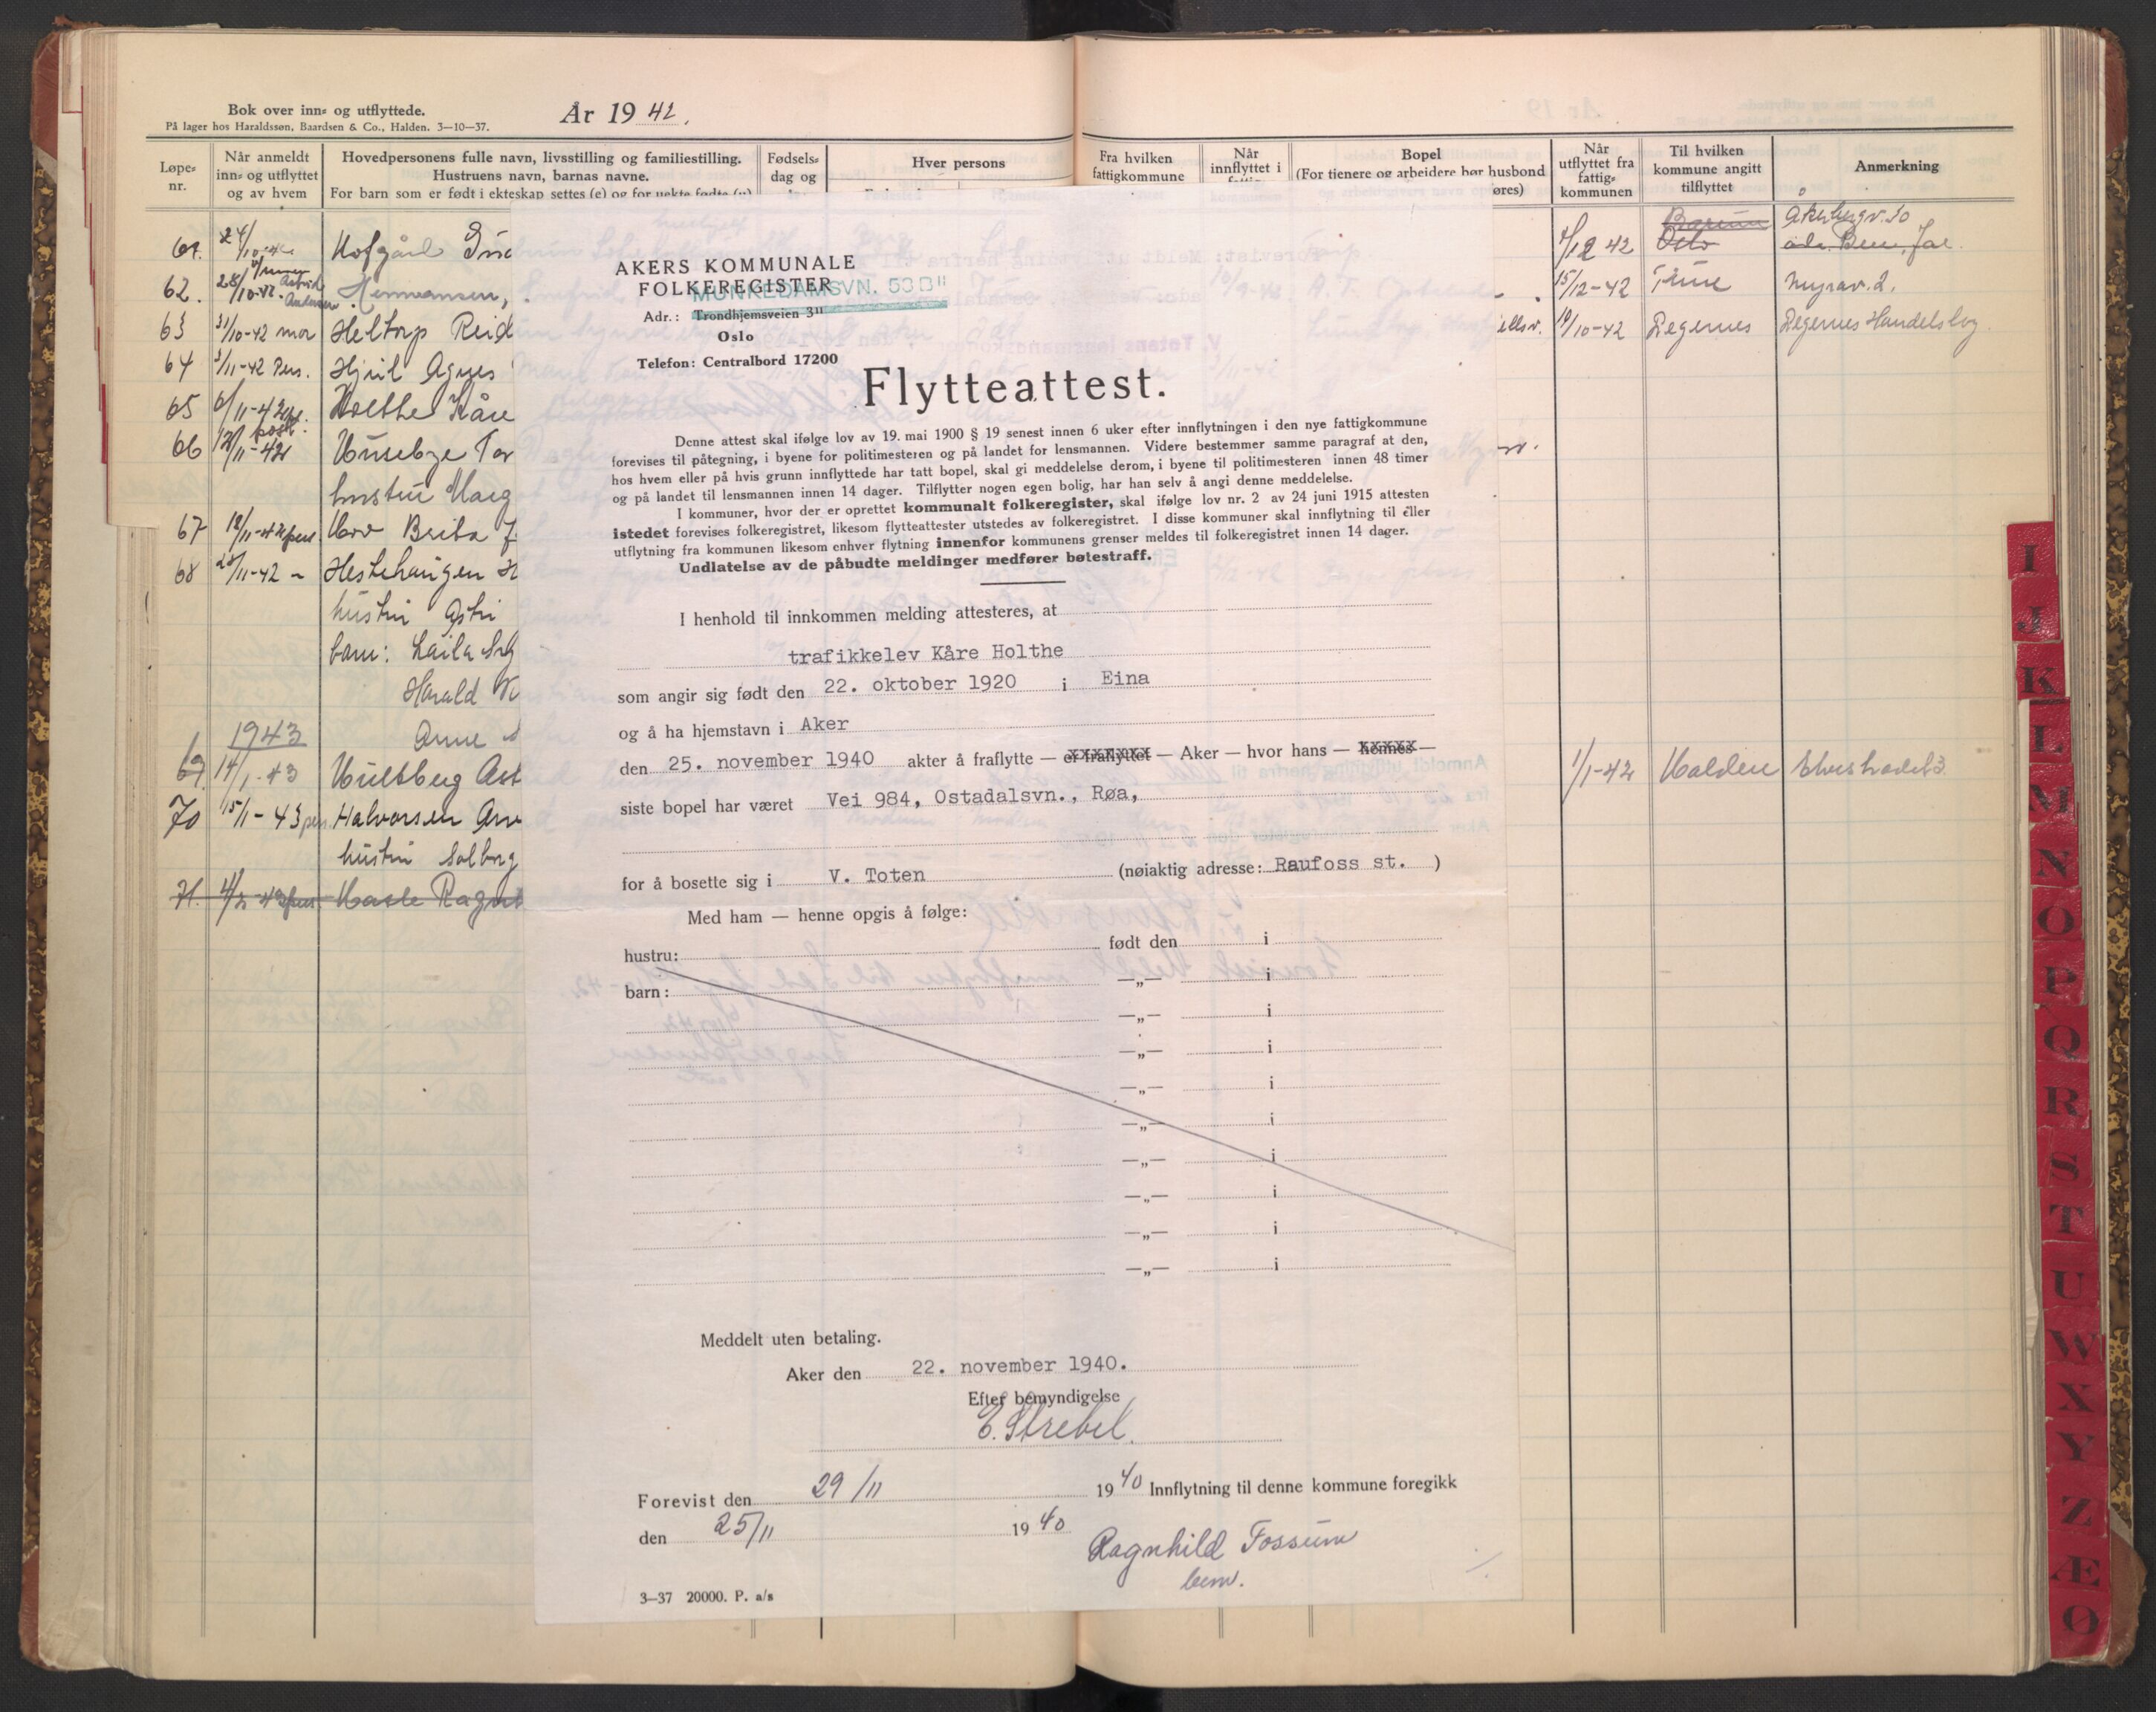 Bok over inn- og utflyttede.
På lager hos Haraldssøn, Baardsen & Co., Halden. 3—10—37.
År 1942.
Løpe-nr.
Når anmeldt inn- og utflyttet og av hvem
Hovedpersonens fulle navn, livsstilling og familiestilling.
Hustruens navn, barnas navne.
For barn som er født i ekteskap settes (e) og for uekte fødte (u)
Fødsels-dag og
Hver persons
Fra hvilken fattigkommune
Når innflyttet i
Bopel
(For tienere og arbeidere bør husbond
øres)
Når utflyttet fra fattig-kommunen
Til hvilken kommune angitt tilflyttet
Anmerkning
61. 24/10-42 Hofgård
62. 28/10-42 Astrid Hermansen,
63 31/10-42 mor Heltorp Reid
64 3/11-42 Pers. Agnes
65 6/11-42 Holthe Kåre
66 12/11-42 post. Huseby Tor
hustru Marg
67 18/11-42 pers Hov
68 28/11-42 Hestehaugen H
hustru Astri
barn: Laila
Harald
Anne
1943
69. 14/1-43 Ast
70 15/1-43 pers. Halvorsen Arv
hustru Solborg
71. Ragn
12 42 Bærum Oslo
15/12-42 Tune
ellsv. 10/10-42 Degernes Degernes Handelslag
1/1-42 Halden
AKERS KOMMUNALE
FOLKEREGISTER
MUNKEDAMSVN. 53B II
Adr.: Trondhjemsveien 3 II
Oslo
Telefon: Centralbord 17200
Flytteattest.
Denne attest skal ifølge lov av 19. mai 1900 § 19 senest innen 6 uker efter innflytningen i den nye fattigkommune
forevises til påtegning, i byene for politimesteren og på landet for lensmannen. Videre bestemmer samme paragraf at den,
hos hvem eller på hvis grunn innflyttede har tatt bopel, skal gi meddelelse derom, i byene til politimesteren innen 48 timer
og på landet til lensmannen innen 14 dager. Tilflytter nogen egen bolig, har han selv å angi denne meddelelse.
I kommuner, hvor der er oprettet kommunalt folkeregister, skal ifølge lov nr. 2 av 24 juni 1915 attesten
istedet forevises folkeregistret, likesom flytteattester utstedes av folkeregistret. I disse kommuner skal innflytning til eller
utflytning fra kommunen likesom enhver flytning innenfor kommunens grenser meldes til folkeregistret innen 14 dager.
Undlatelse av de påbudte meldinger medfører bøtestraff.
I henhold til innkommen melding attesteres, at
trafikkelev Kåre Holthe
som angir sig født den 22. oktober 1920 i Eina
og å ha hjemstavn i Aker
den 25. november 1940 akter å fraflytte — er fraflyttet — Aker — hvor hans — hennes —
siste bopel har været Vei 984, Ostadalsvn., Røa,
for å bosette sig i V. Toten (nøiaktig adresse: Raufoss st. )
Med ham — henne opgis å følge:
hustru: født den i
barn: —„— i
—„— i
—„— i
—„— i
—„— i
—„— i
—„— i
—„— i
—„— i
Meddelt uten betaling.
Aker den 22. november 1940.
Efter bemyndigelse
E. Strebel.
Forevist den 29/11 1940 Innflytning til denne kommune foregikk
den 25/11 1940
Ragnhild Fossum
bem.
3—37 20000. P. a/s
I
J
K
L
M
N
O
P
Q
R
S
T
U
W
X
Y
Z
Æ
Ø